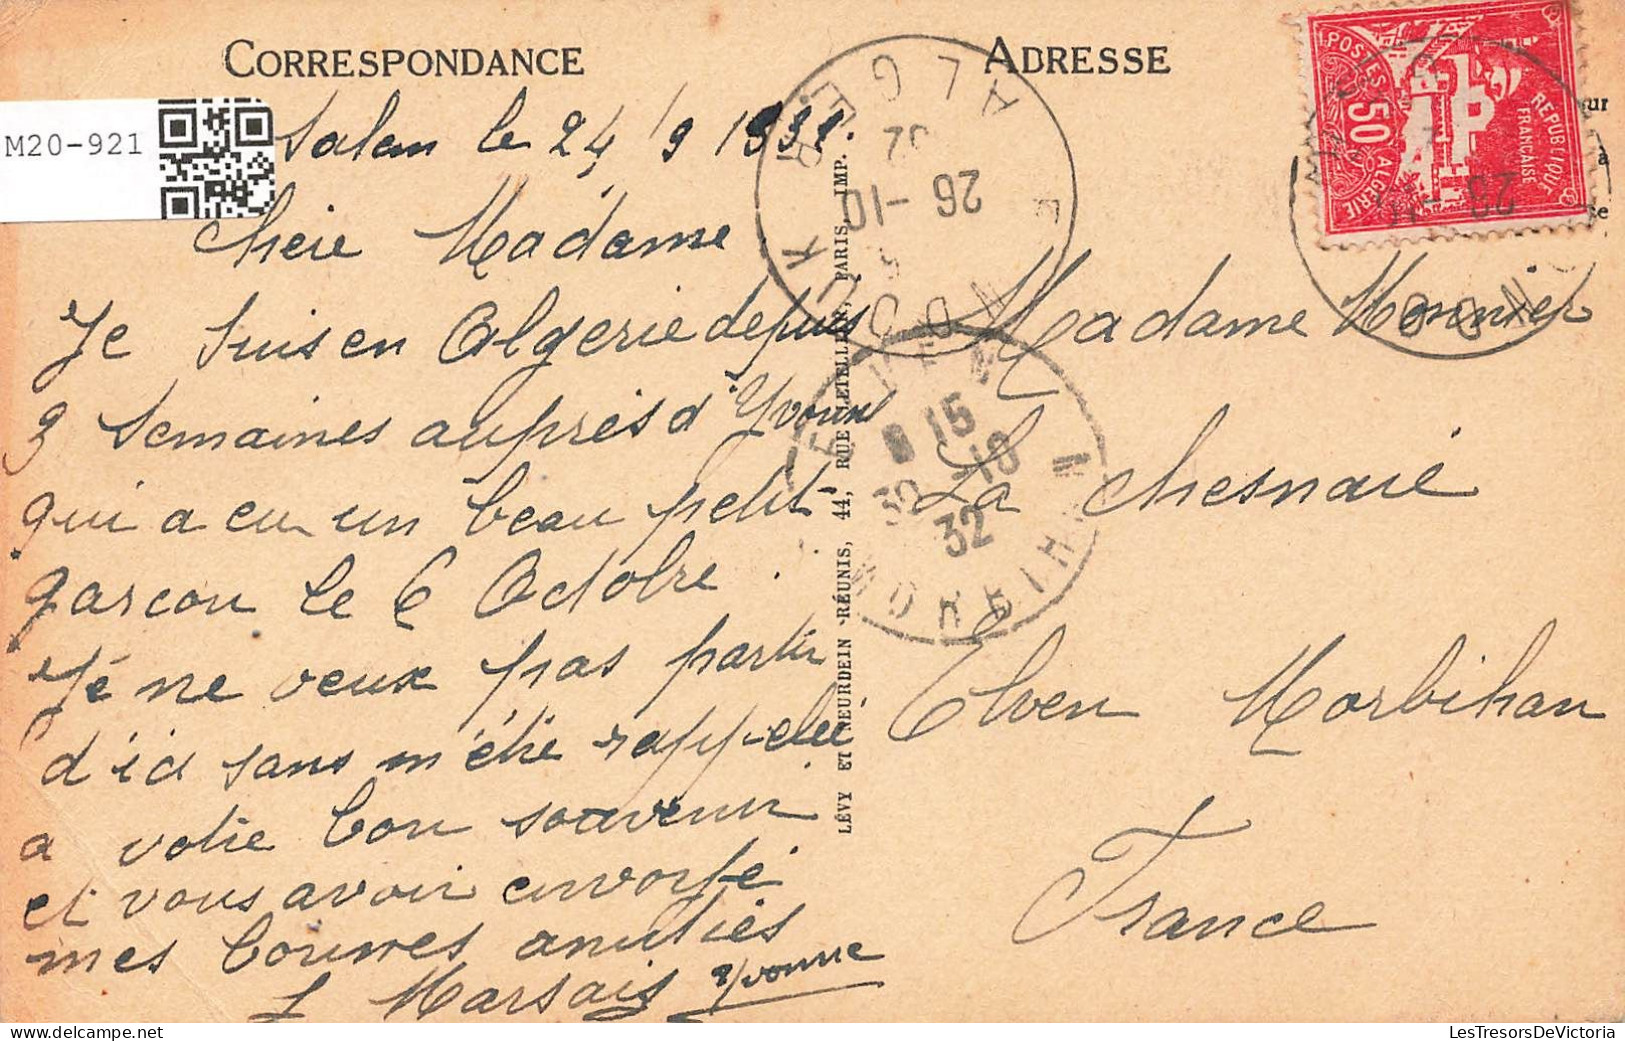 CORRESPONDANCE
ADRESSE
M20-921
le 24/9 193
Chère Madame
Je suis en Algerie depuis
3 semaines auprès d'Yvonne
qui a eu un beau petit
garcon le 6 Octobre
Je ne veux pas partir
d'ici sans m'être rappelée
a votre bon souvenir
et vous avoir envoyé
mes bonnes amitiés
Marsais Yvonne
LÉVY ET NEURDEIN RÉUNIS, 44, RUE LETELLIER, PARIS, IMP.
Madame Monnier
La Chesnaie
Elven Morbihan
France
POSTES
50
ALGÉRIE
RÉPUBLIQUE
FRANÇAISE
ALGER
26 -10
32
26
ELVEN
15
30 -10
32
MORBIHAN
LesTresorsDeVictoria
www.delcampe.net